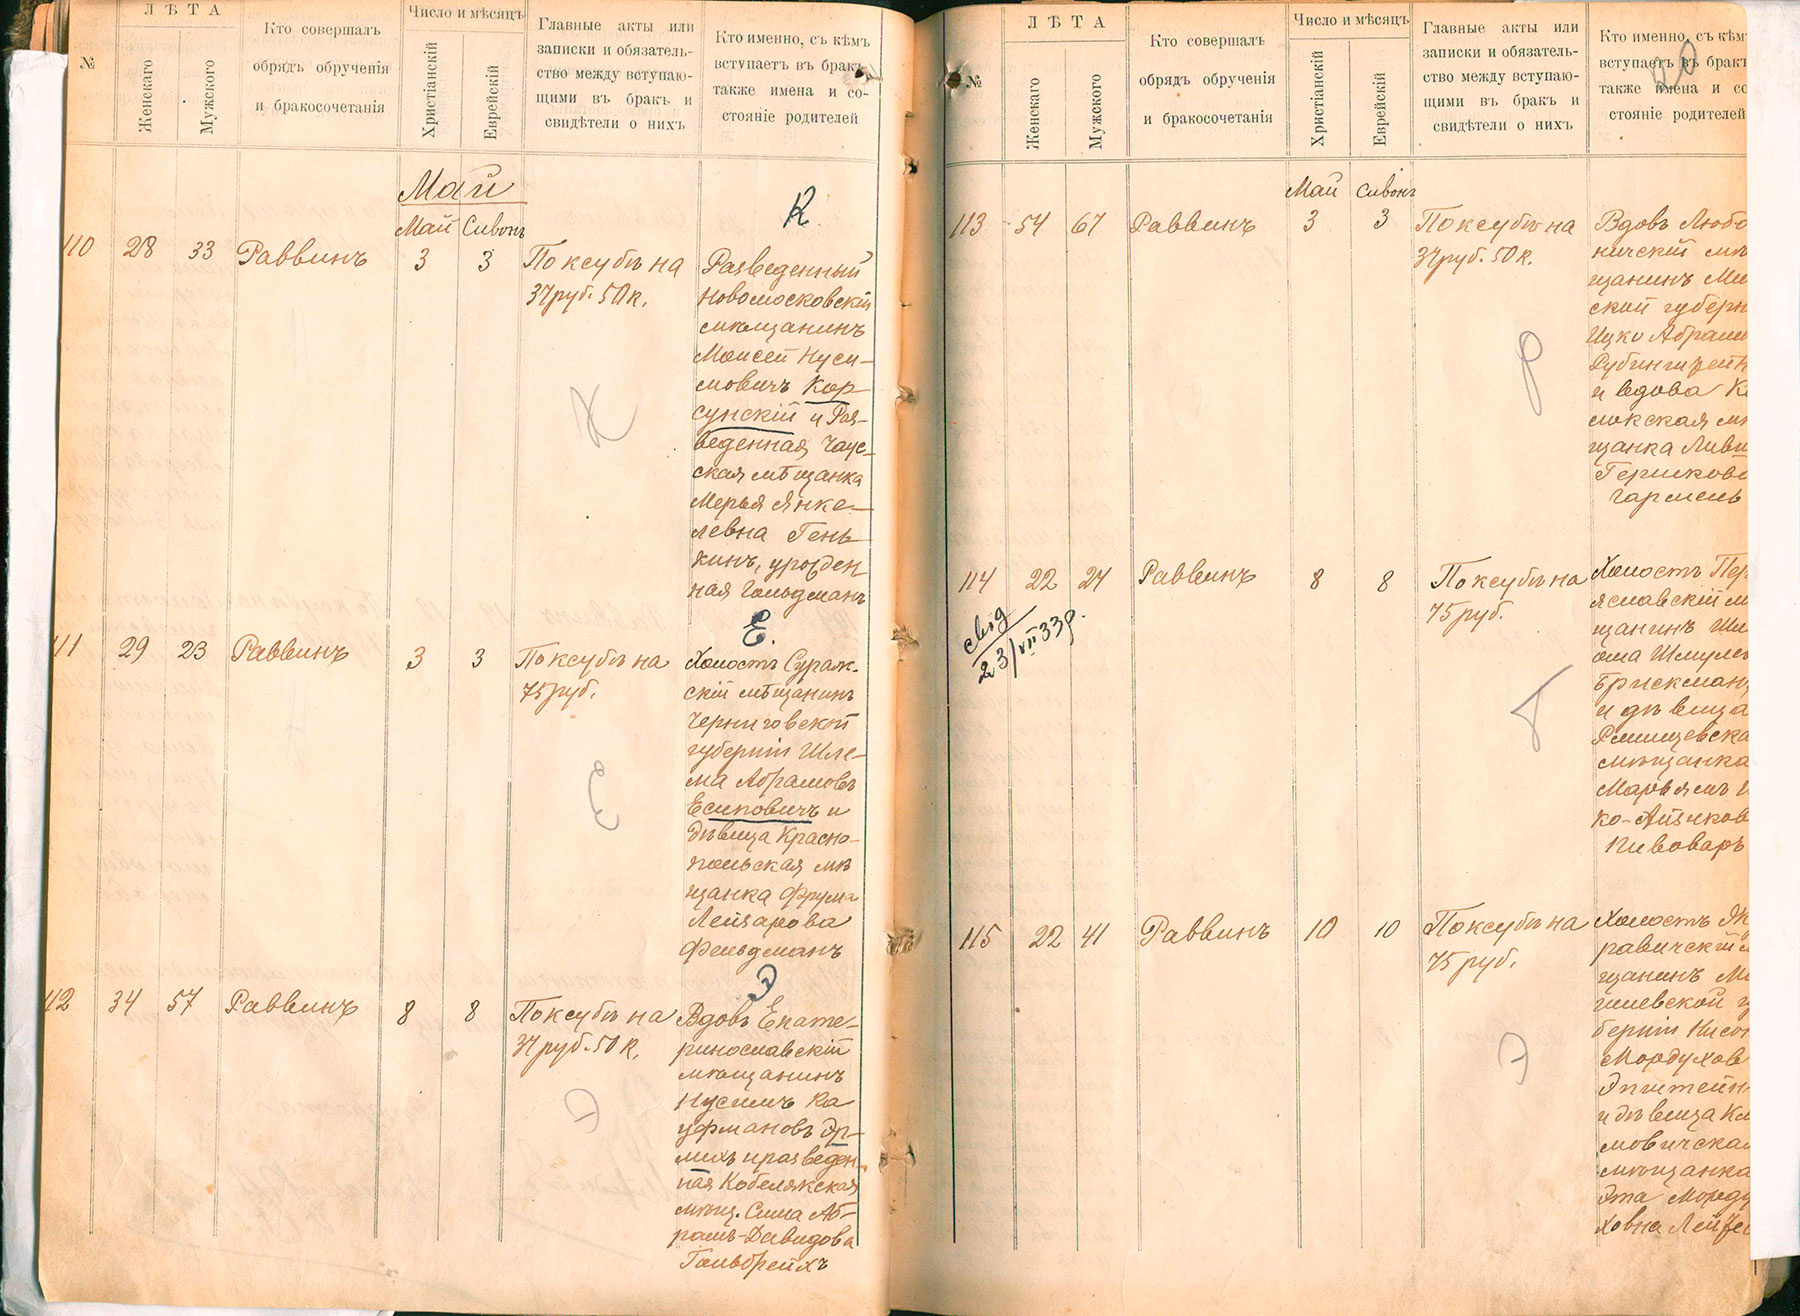 №
ЛѢТА
Женскаго
Мужского
Кто совершалъ
обрядъ обрученія
и бракосочетанія
Число и мѣсяцъ
Христіанскій
Еврейскій
Главные акты или
записки и обязатель-
ство между вступаю-
щими въ бракъ и
свидѣтели о нихъ
Кто именно, съ кѣмъ
вступаетъ въ бракъ
также имена и со-
стояніе родителей
Май
Май Сивонъ
К
110 28 33 Раввинъ 3 3
По ксубъ на
37 руб. 50 к.
Разведенный
новомосковскій
мѣщанинъ
Моисей Нуси-
мовичъ Кор-
сунскій и Раз-
веденная Чаус-
ская мѣщанка
Мерья Янке-
левна Гень-
кинъ, урожден-
ная Гольдманъ
К
Е.
11 29 23 Раввинъ 3 3
По ксубъ на
75 руб.
Холостъ Сураж-
скій мѣщанинъ
Черниговской
губерніи Шле-
ма Абрамовъ
Есиповичъ и
дѣвица Красно-
польская мѣ
щанка Фрума
Лейзарова
Фельдманъ
Э
12 34 57 Раввинъ 8 8
По ксубъ на
37 руб. 50 к.
Вдовъ Екате-
ринославскій
мѣщанинъ
Нусимъ Ка
уфмановъ Эр-
лихъ и разведен
ная Кобелякская
мѣщ. Сима Аб-
рамъ-Давидова
Гольбрейхъ
Э
№
ЛѢТА
Женскаго
Мужского
Кто совершалъ
обрядъ обрученія
и бракосочетанія
Число и мѣсяцъ
Христіанскій
Еврейскій
Главные акты или
записки и обязатель-
ство между вступаю-
щими въ бракъ и
свидѣтели о нихъ
Кто именно, съ кѣм
вступаетъ въ бракъ
также имена и со
стояніе родителей
20
Май Сивонъ
113 54 67 Раввинъ 3 3
По ксубъ на
37 руб. 50 к.
Вдовъ Любо
ничскій мѣ
щанинъ Ми
ской губерн
Ицко Абрам
Рубингитейн
и вдова К
мокская мѣ
щанка Ливи
Гершково
Гармель
Р
114 22 27 Раввинъ 8 8
По ксубъ на
75 руб.
свид
23/VII 33 г.
Холостъ Пер
яславскій м
щанинъ Ши
ома Шмулев
Брискман
и дѣвица
Ряшцевска
мѣщанка
Марьямъ И
ко-Айзиков
Пивоваръ
Б
115 22 41 Раввинъ 10 10
По ксубъ на
75 руб.
Холостъ Жу
равичскій м
щанинъ Мо
гилевской гу
берніи Нисон
Мордухов
Эпштейн
и дѣвица Кли
мовичская
мѣщанка
Эта Морду
ховна Лейзе
Э